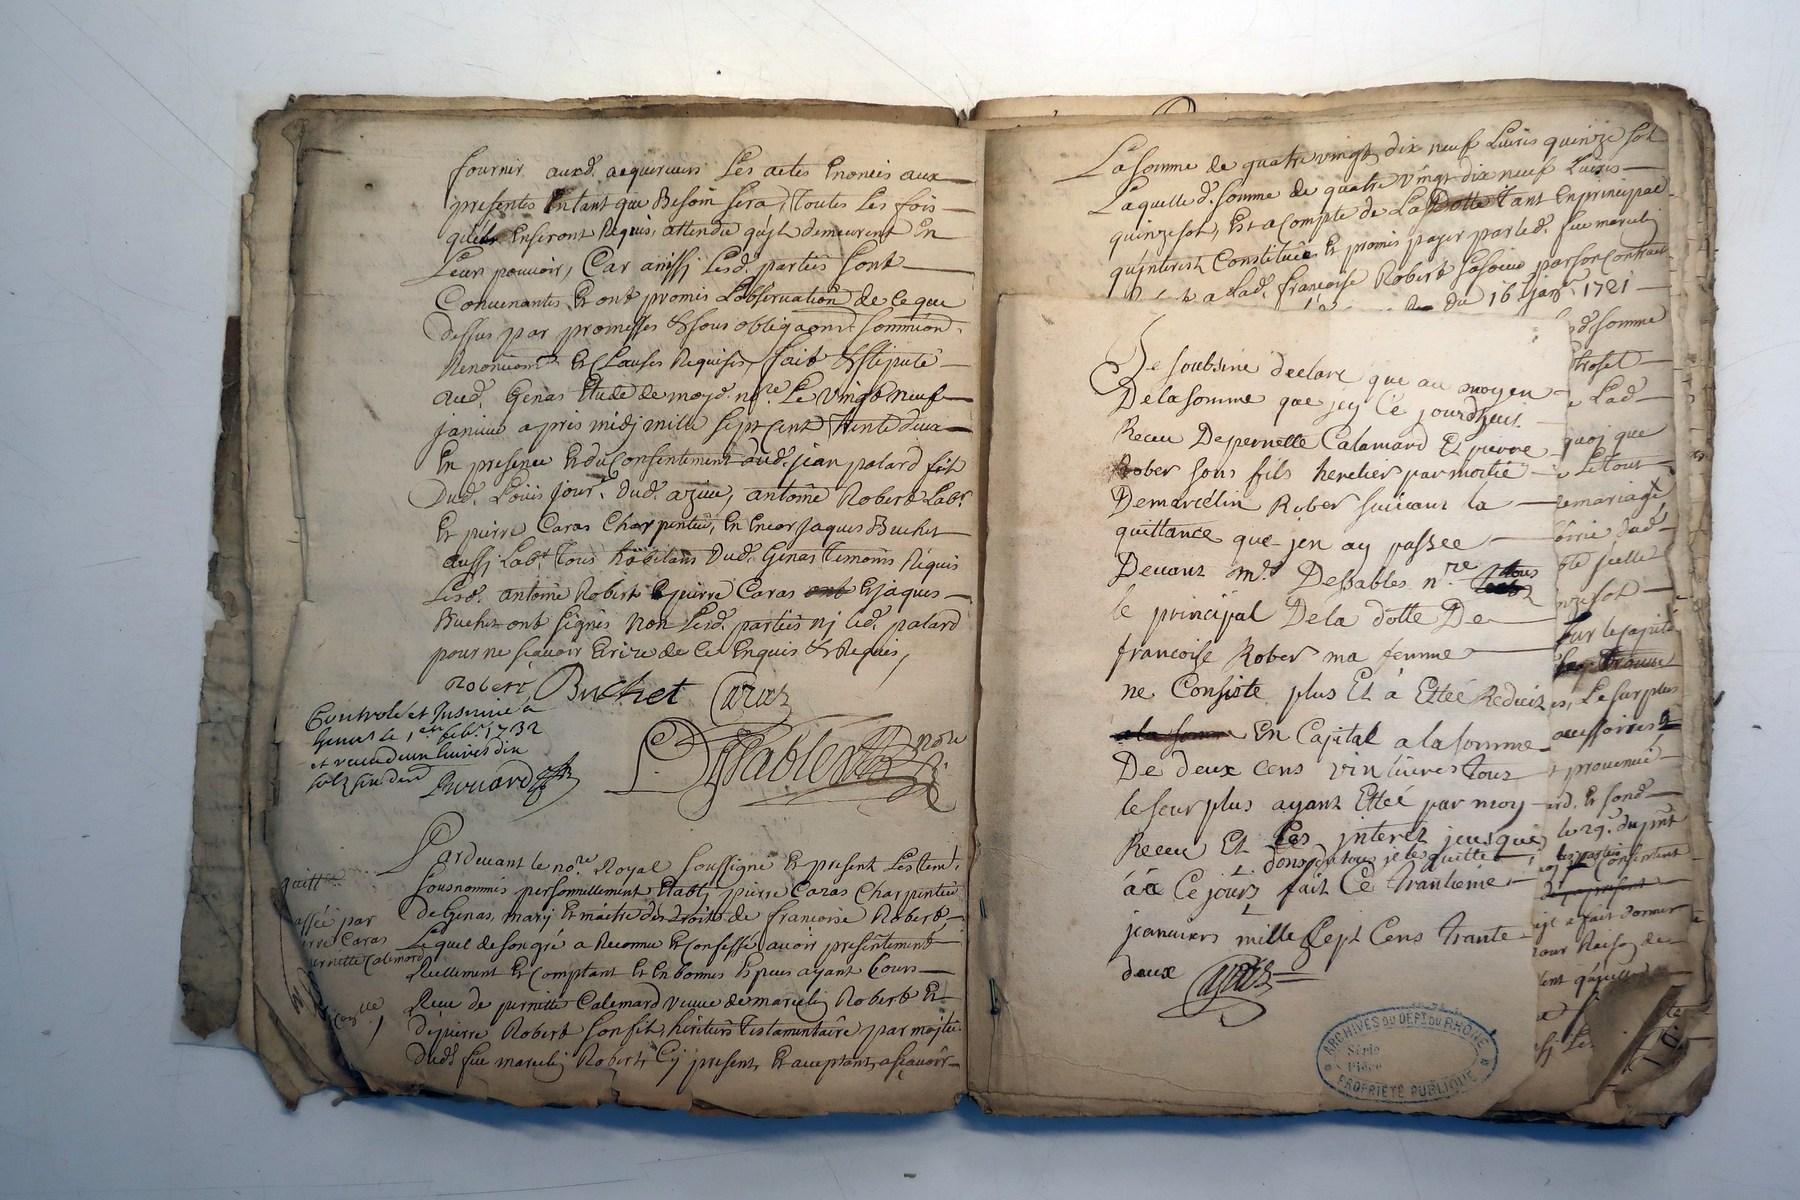 fournir auxd. acquereurs Les actes Enoncés aux
presentes Entant que Besoin sera, Toutes Les fois
quils Enseront Requis, attendu quils demeurent En
Leur pouvoir, Car ainssi Lesd. parties sont
Convenantes Et ont promis Lobservation de Ce que
dessus par promesses & sous obligaons. soumission.
Renonciaons Et Clauses Requises, fait & stipulé
aud. Genas Etude de moyd. nre. Le Vingt neuf
janvier apres midj mille sept Cent Trente deux
En presence Et du Consentement dud. jean palard fils
Dud. Loüis jour. dud. azieu, antoine Robert Labr.
Et pierre Caras Charpentier, En Encor Jaques Buchet
aussj Labr. Tous habitans Dud. Genas Temoins Requis
Lesd. antoine Robert Et pierre Caras ont Et jaques
Buchet ont signés Non Lesd. parties nj led. palard
pour ne sçavoir Ecrire de Ce Enquis & Requis,
Robert Buchet Caras
Controlé et Insinué a
Genas le 1er febr. 1732
et receu deux livres dix
Dessables nore
Par devant le nore. Royal soussigné Et presents Les tem.
sousnommés personnellement Etabli pierre Caras Charpentier
de Genas, mary Et maitre des Droits de françoise Robert,
Lequel de son gré a Reconnu Et Confessé avoir presentement
Reellement Et Comptant Et En bonnes Especes ayant Cours
Receu de pernette Calemard veuve de marcelin Robert Et
de pierre Robert son fils, heritiers Testamentaire par moitié
dud. feu marcelin Robert, Cy present, Et acceptant, a sçavoir
quittce.
passée par
pierre Caras
pernette Calemard
La somme de quatre vingt dix neuf Livres quinze sol
Laquelle d. somme de quatre vingt dix neuf Livres
quinze sol, Est a Compte de La Dotte Tant En principal
qu'interest Constituée Et promis payer par led. feu marcelin
a Lad. françoise Robert sa soeur par son Contract
du 16 janr. 1721
Je soubsiné declare que au moyen
De la somme que jey Ce jourdhuis
Receu De pernette Calamard Et pierre
Rober sons fils heretier par moitié
De marcelin Rober suivant la
quittance que jen ay passee
Devant me. Dessables nre
le principal De la dotte De
francoize Rober ma femme
ne Consiste plus Et à Ettéé Reduiz
a la somme En Capital a la somme
De deux cens vin livres tous
le seur plus ayant Ettéé par moy
Receu Et Les jnterez jeusques
dons du tous je les quitte
áá Ce jours fait Ce trantieme
jeanviers mille sept Cens trante
deux Caras
d. somme
Lad.
quoj que
Le tout
mariage
Le surplus
provenué
Et fond
le 29e. du pnt
les parties
Consentent
a fait donner
pour Raison de
ARCHIVES DU DÉPT. DU RHÔNE
Série
Pièce
PROPRIÉTÉ PUBLIQUE